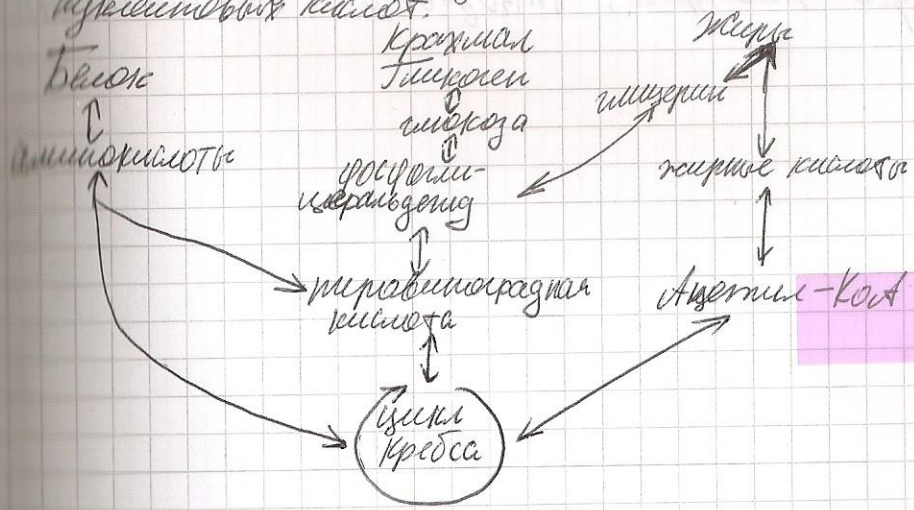 нуклеиновых кислот.
Белок
аминокислоты
Крахмал
Гликоген
глюкоза
фосфогли-
церальдегид
пировиноградная
кислота
Цикл
Кребса
Жиры
глицерин
жирные кислоты
Ацетил-КоА